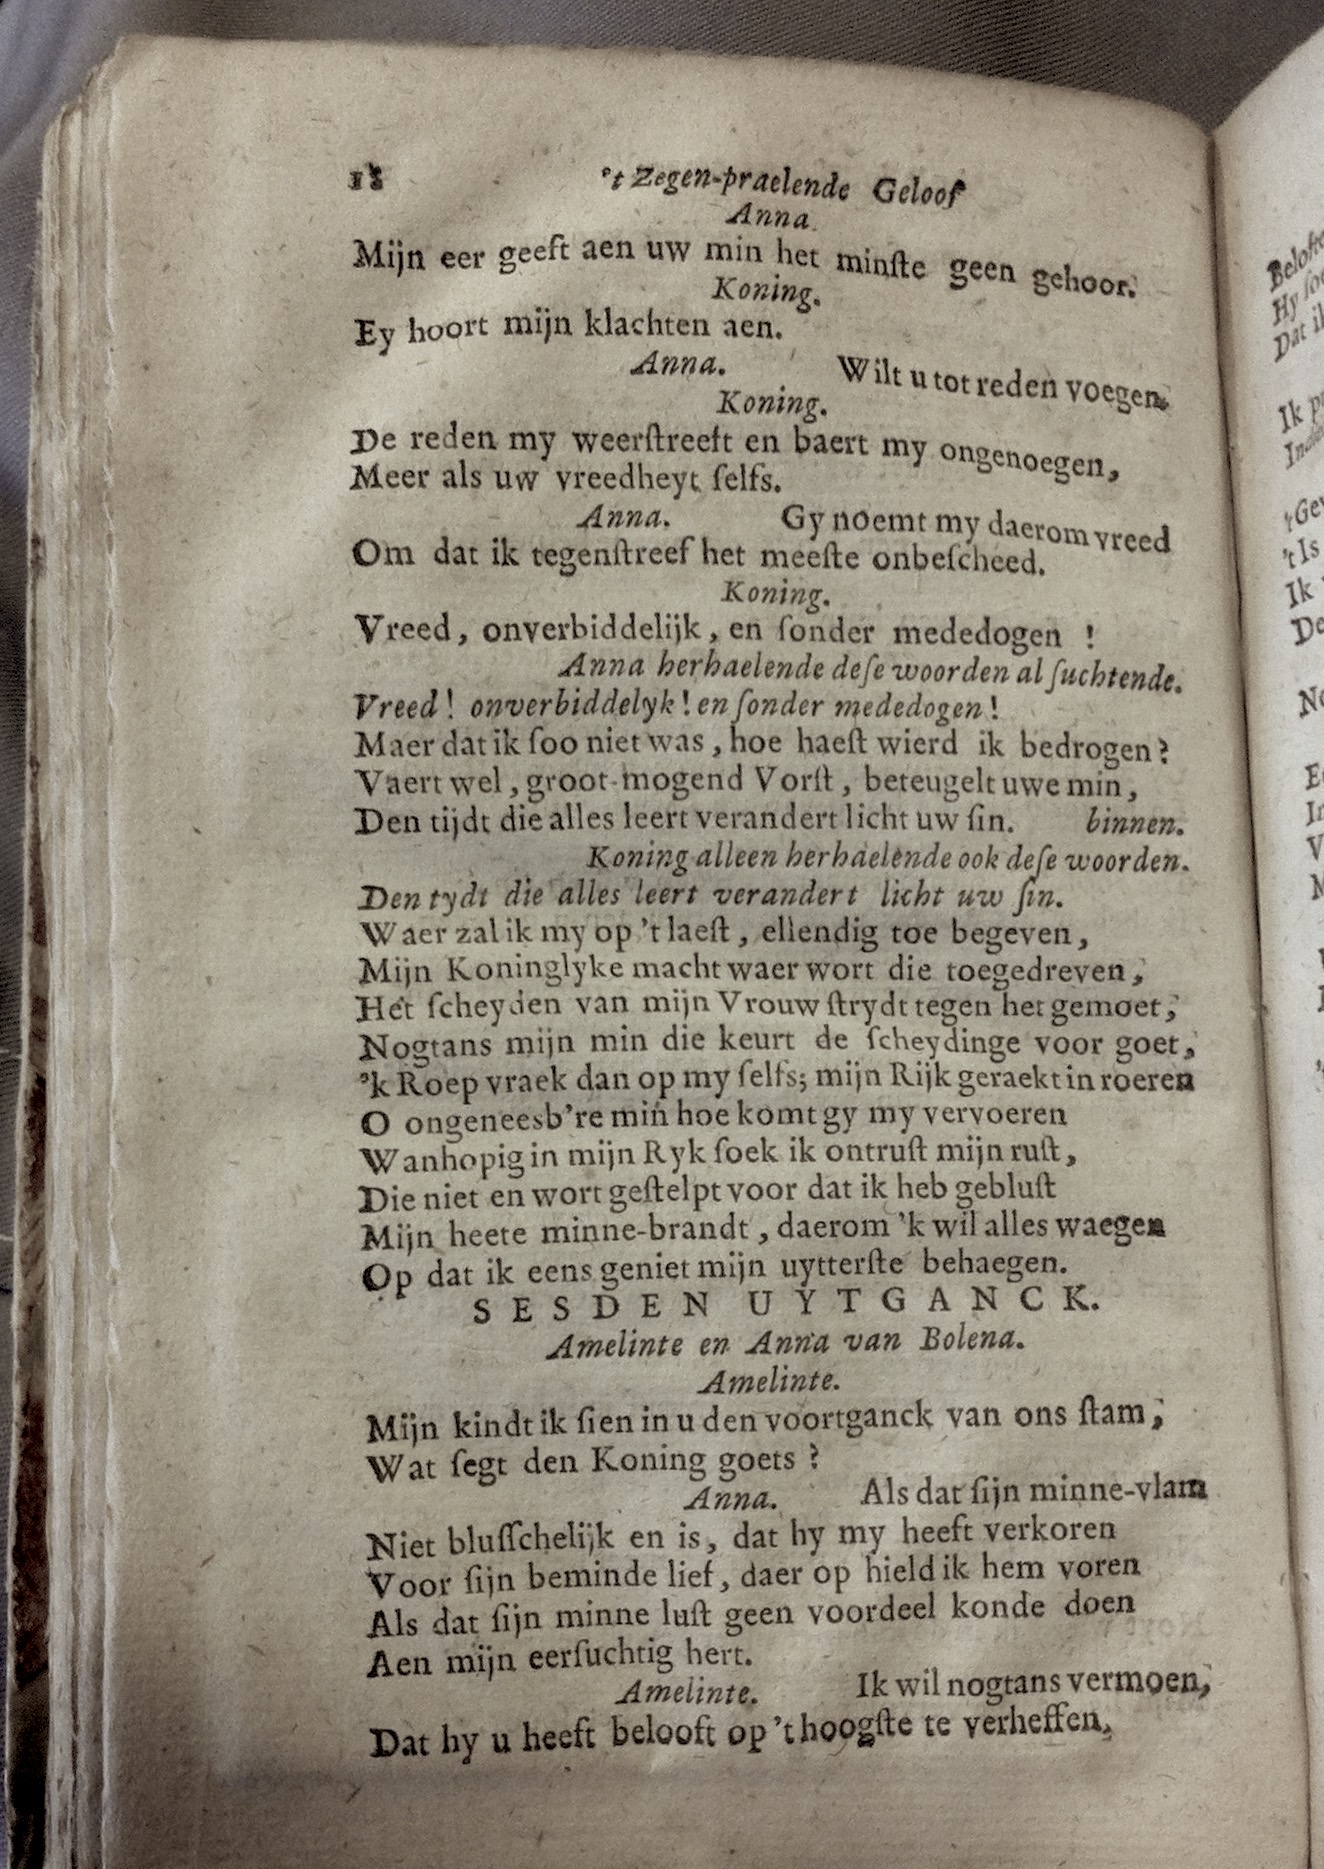 18 't Zegen-praelende Geloof
Anna.
Mijn eer geeft aen uw min het minſte geen gehoor.
Koning.
Ey hoort mijn klachten aen.
Anna. Wilt u tot reden voegen.
Koning.
De reden my weerſtreeft en baert my ongenoegen,
Meer als uw vreedheyt ſelfs.
Anna. Gy noemt my daerom vreed
Om dat ik tegenſtreef het meeſte onbeſcheed.
Koning.
Vreed, onverbiddelijk, en ſonder mededogen !
Anna herhaelende deſe woorden al ſuchtende.
Vreed! onverbiddelyk! en ſonder mededogen!
Maer dat ik ſoo niet was, hoe haeſt wierd ik bedrogen?
Vaert wel, groot-mogend Vorſt, beteugelt uwe min,
Den tijdt die alles leert verandert licht uw ſin. binnen.
Koning alleen herhaelende ook deſe woorden.
Den tydt die alles leert verandert licht uw ſin.
Waer zal ik my op 't laeſt, ellendig toe begeven,
Mijn Koninglyke macht waer wort die toegedreven,
Het ſcheyden van mijn Vrouw ſtrydt tegen het gemoet,
Nogtans mijn min die keurt de ſcheydinge voor goet,
'k Roep vraek dan op my ſelfs; mijn Rijk geraekt in roeren
O ongeneesb're min hoe komt gy my vervoeren
Wanhopig in mijn Ryk ſoek ik ontruſt mijn ruſt,
Die niet en wort geſtelpt voor dat ik heb gebluſt
Mijn heete minne-brandt, daerom 'k wil alles waegen
Op dat ik eens geniet mijn uytterſte behaegen.
SESDEN UYTGANCK.
Amelinte en Anna van Bolena.
Amelinte.
Mijn kindt ik ſien in u den voortganck van ons ſtam,
Wat ſegt den Koning goets ?
Anna. Als dat ſijn minne-vlam
Niet bluſſchelijk en is, dat hy my heeft verkoren
Voor ſijn beminde lief, daer op hield ik hem voren
Als dat ſijn minne luſt geen voordeel konde doen
Aen mijn eerſuchtig hert.
Amelinte. Ik wil nogtans vermoen,
Dat hy u heeft belooft op 't hoogſte te verheffen,
Hy
Dat
Ik
't Is
Ik